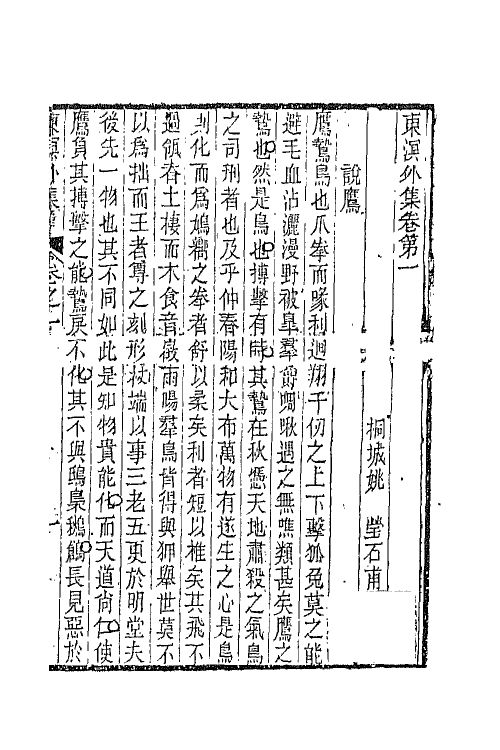 東溟外集卷第一
桐城姚 瑩石甫
說鷹
鷹鷙鳥也爪拳而喙利迴翔千仞之上下擊狐兔莫之能
避毛血沾灑漫野被臯羣爵啁啾遇之無噍類甚矣鷹之
鷙也然是鳥也搏擊有時其鷙在秋憑天地肅殺之氣鳥
之司刑者也及乎仲春陽和大布萬物有遂生之心是鳥
則化而為鳩嚮之拳者舒以柔矣利者短以椎矣其飛不
過瓴舂土棲而木食音徵雨暘羣鳥皆得與狎舉世莫不
以為拙而王者尊之刻形杖端以事三老五更於明堂夫
後先一物也其不同如此是知物貴能化而天道尚仁使
鷹負其搏擊之能鷙戾不化其不與鴟梟鵂鶹長見惡於
東溟外集 卷之一 一